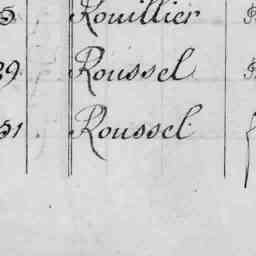 5 Rouillier
29 Roussel
31 Roussel